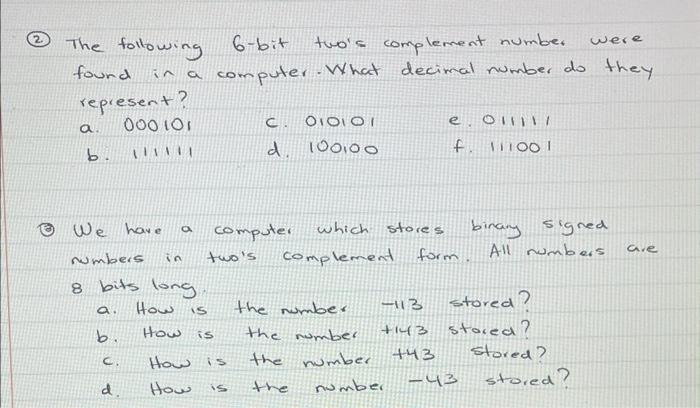 ② The following 6-bit two's complement number were
found in a computer. What decimal number do they
represent?
a. 000101 c. 010101 e. 011111
b. 111111 d. 100100 f. 111001
③ We have a computer which stores binary signed
numbers in two's complement form. All numbers are
8 bits long.
a. How is the number -113 stored?
b. How is the number +143 stored?
c. How is the number +43 stored?
d. How is the number -43 stored?